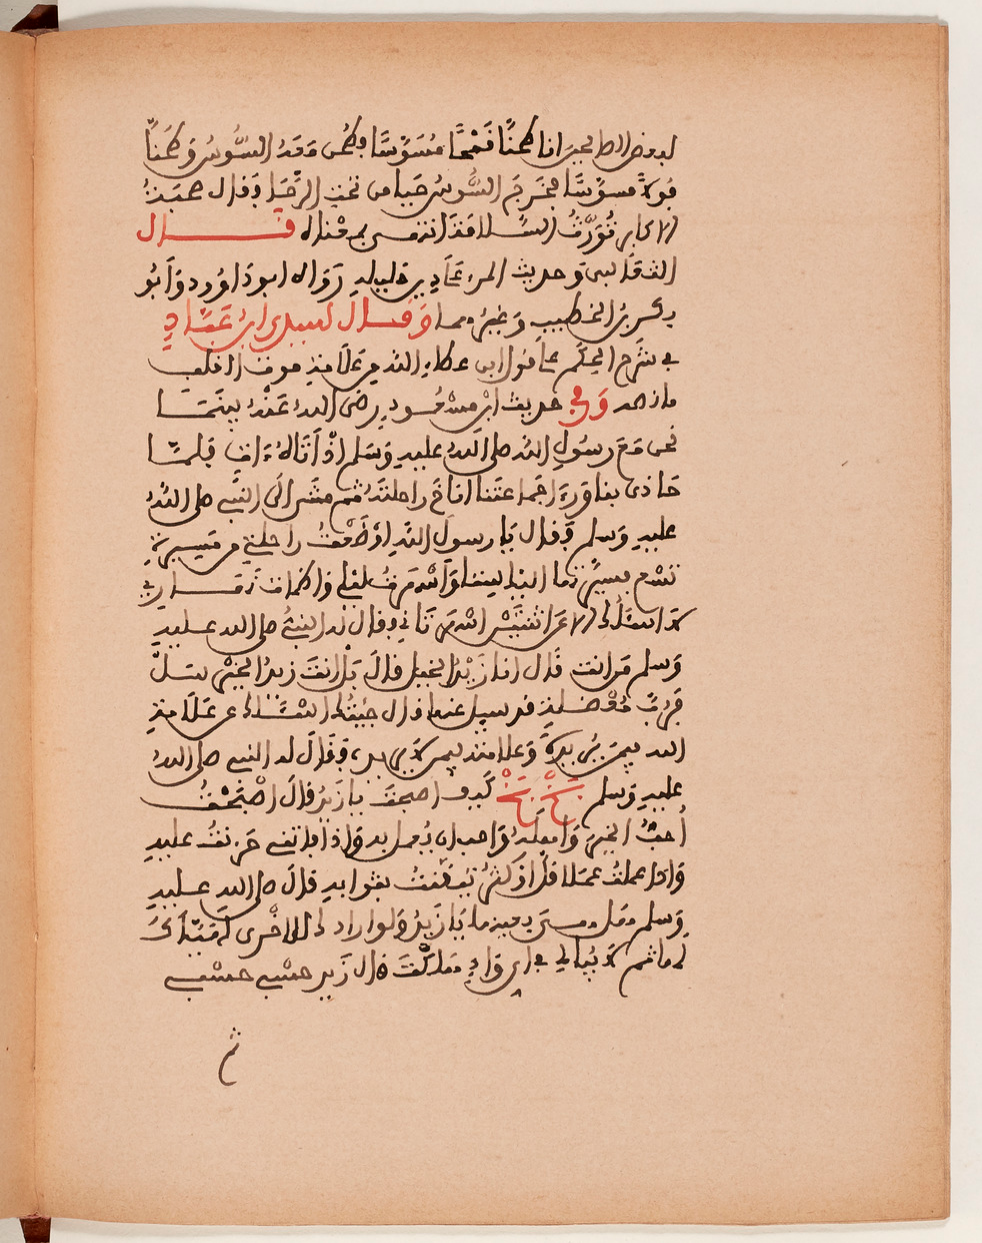 لبعض الطالحين انا طحنّا قَمْحًا مُسَوَّسًا فطُحِن معه السُّوس وَطَحَنَّا
فولا مسوّسًا فخرجَ السُّوس حيا من تحت الرَّحا فقال صحبَة
الاكابر تُوَرِّثُ السلامة انتهى بمعناه قـــال
الثعالبى وحديث المرء على دين خليله رَوَاه ابو دَاوود وَأبُو
بكر بن الخطيب وَغيرهما وَقــال سيدى ابن عَبَّاد
فى شرح الحكم على قول ابن عطاء الله من عَلَامة موت القلب
ما نصه وَفى حديث ابن مسْعُـود رضى الله عَنْهُ بينَمَا
نحن مَعَ رسُولِ الله صلى الله عليه وَسَلم اذْ أتَاهُ ءات فلمّا
حَاذى بنا وَرءَا جَماعتَنا اناخَ راحلتهُ ثم مشى الَى النبى صلى الله
عليه وَسلم فقال يَا رسولَ الله أوْضَعْتُ راحلتى من مَسيرة
تسْع فسيّرتها اليك ستا وَأسْهرتُ ليلى وَاظمأت نهـارى
لاسئلك عن اثنتيْن أسْهرتَانى فقال له النبىُّ صلى الله عليه
وَسلم مَن انت قَال انا زَيْدُ الخيل قالَ بَلْ انتَ زيدُ الخيْر سَلْ
فرُبَّ مُعْضلة قد سيل عنها قال جئتُكَ اسْئلك عن عَلَامة
الله فيمن يُريدهُ وَعلامته فيمن لا يريد، فقالَ له النبى صلى الله
عليه وَسلم بَخْ بَخْ كيف اصبحتَ يا زَيْدُ قالَ اصْبَحْتُ
أحبُّ الخيرَ وَأهلَهُ وَاحب ان يُعمل به وَاذا فاتنى حَزنتُ عليه
وَاذا عملتُ عمَلا قلّ اوْ كثُر أيقنتُ بثوابه قالَ صلى الله عليه
وَسلم هى هى بعينها يَا زَيدُ وَلو ارادك الله للاخْرى لهَيّأكَ
لها ثم لا يُبالى فى اى وَادٍ هلكْتَ قال زَيد حسْبى حسْبى
ثم